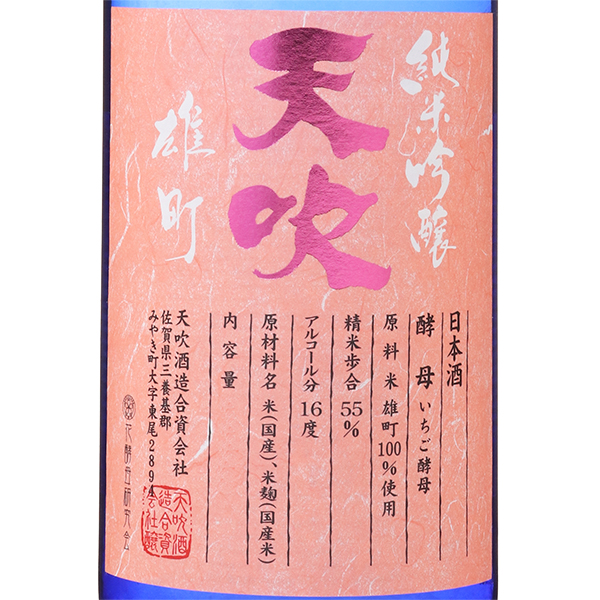 純米吟醸
天吹
雄町
日本酒
酵母 いちご酵母
原料米 雄町100%使用
精米歩合 55%
アルコール分 16度
原材料名 米(国産)、米麹(国産米)
内容量
天吹酒造合資会社
佐賀県三養基郡
みやき町大字東尾2894
花酵母研究会
天吹酒
造合資
会社醸